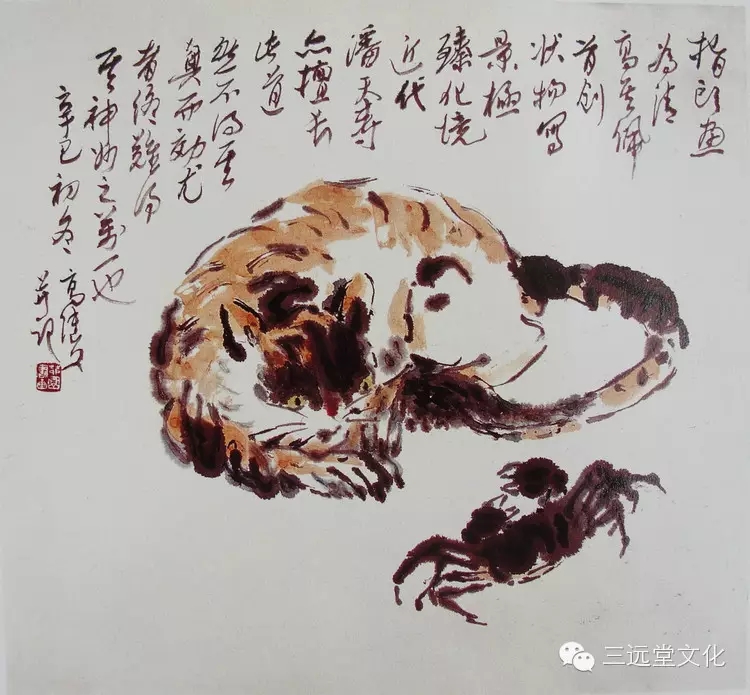 指頭畫
為清
高其佩
首创
状物寫
景極
臻化境
近代
潘天壽
亦擅長
此道
然不得其
真而効尤
者終難得
其神妙之萬一也
辛巳初冬
并记
三远堂文化